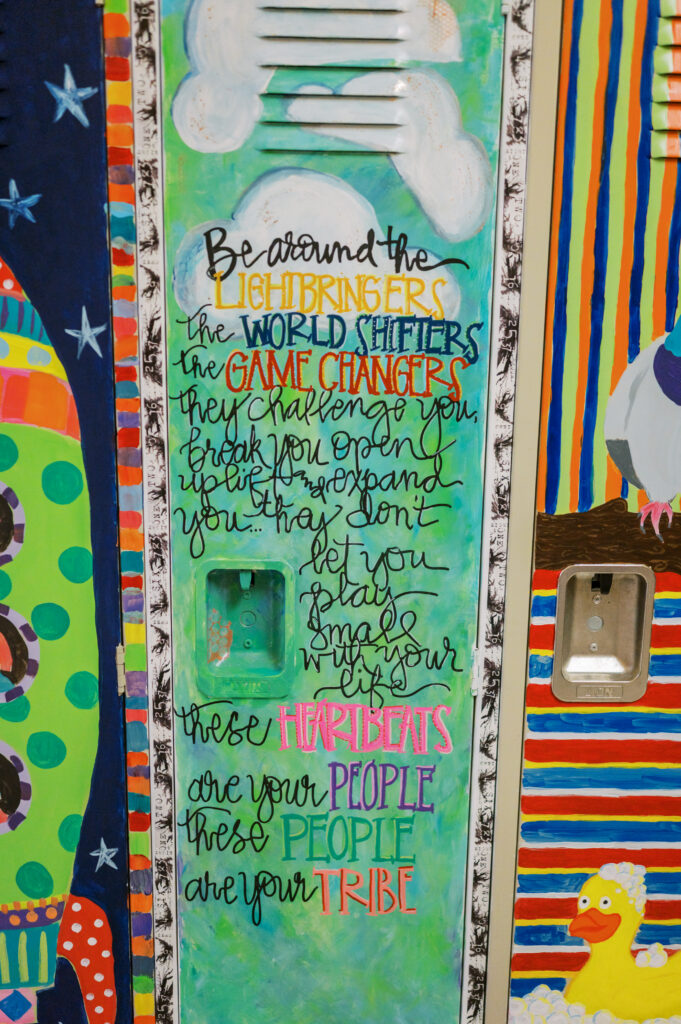 Be around the
LIGHTBRINGERS
the WORLD SHIFTERS
the GAME CHANGERS
they challenge you,
break you open
uplift and expand
you... they don't
let you
play
small
with your
life
these HEARTBEATS
are your PEOPLE
these PEOPLE
are your TRIBE